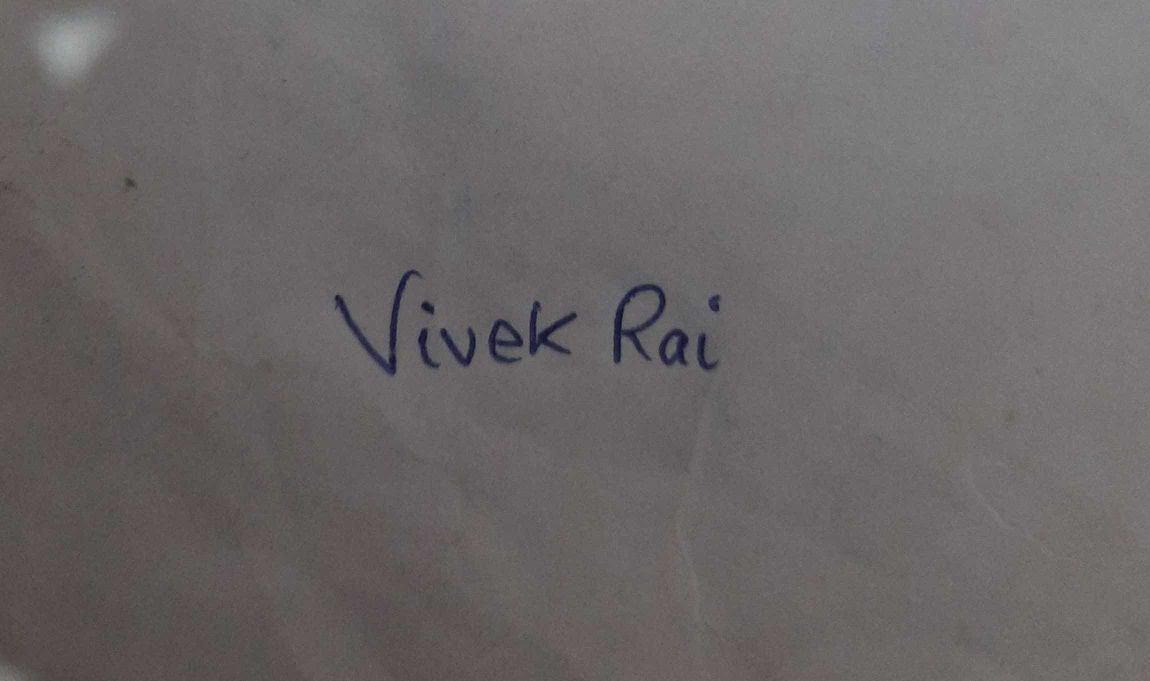 Vivek Rai